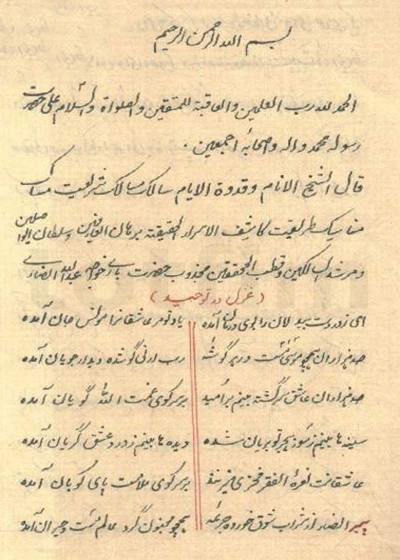 بسم الله الرحمن الرحیم
الحمد لله رب العلمین والعاقبة للمتقین والصلواة والسّلام علی حضرت
رسوله محمد واله واصحابه اجمعین.
قال الشیخ الانام وقدوة الایام سالک مسالک شریعت
مناسک طریقت کاشف الاسرار الحقیقة برهان العارفین وسلطان الواصلین
و مرشد السالکین وقطب المحققین مجذوب حضرت باری خواجه عبدالله انصاری
(غزل در توحید)
ای ز دردت بیدلان را بوی درمان آمده یاد تو مر عاشقانرا مونس جان آمده
صد هزاران همچو موسی مست در هر گوشه رب ارنی گو شده دیدار جویان آمده
صد هزاران عاشق سرگشته بینم بر امید بر سر کوی غمت الله گویان آمده
سینه ها بینم ز سوز هجر تو بریان شده دیده ها بینم ز درد عشق گریان آمده
عاشقانت نعرهٔ الفقر فخری میزنند بر سر کوی ملامت پای کوبان آمده
پیر انصار از شراب شوق خورده جرعه همچو مجنون گرد عالم مست و حیران آمده